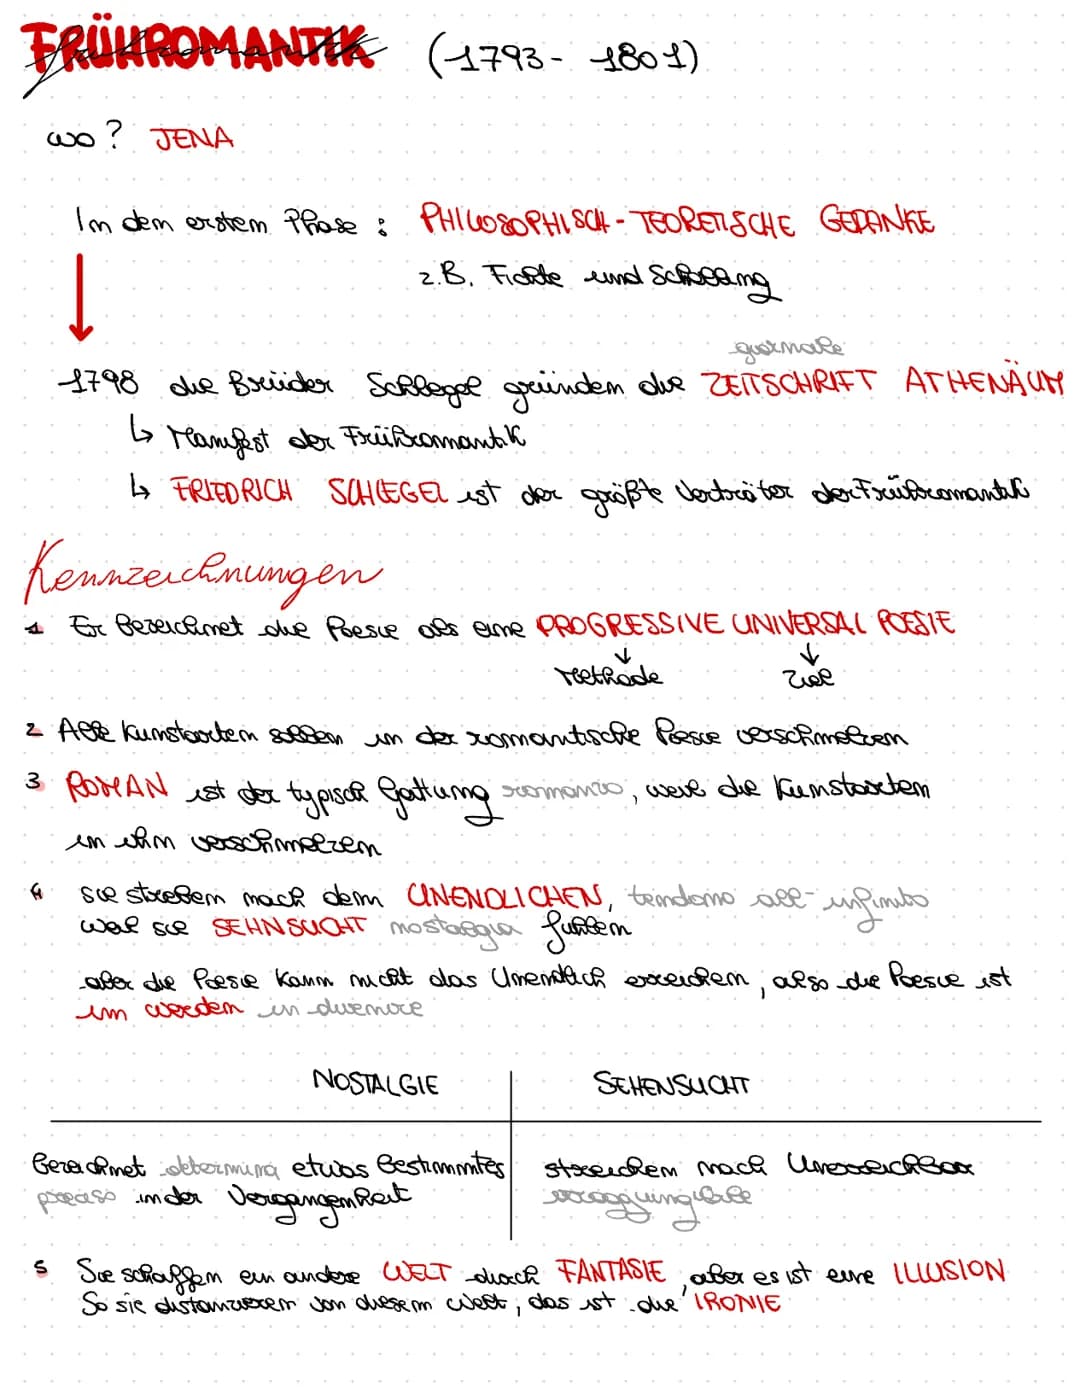 FRÜHROMANTIK (1793- 1801)
wo? JENA
In dem erstem Phase: PHILOSOPHISCH-TEORETISCHE GEDANKE
z.B. Fichte und Schelling
giornale
1798 die Brüider Schlegel gründen die ZEITSCHRIFT ATHENÄUM
↳ Manifest der Frühromantik
↳ FRIEDRICH SCHLEGEL ist der größte Verträter der Frühromantik
Kennzeichnungen
1 Er bezeichnet die Poesie als eine PROGRESSIVE UNIVERSAL POESIE
↓ ↓
Methode Ziel
2 Alle Kunstarten sollen in der romantische Poesie verschmelzen
3 ROMAN ist der typisch Gattung romanzo, weil die Kunstarten
in ihm verschmelzen
4 sie streben nach dem UNENDLICHEN, tendono all-infinito
weil sie SEHNSUCHT nostalgia fühlen
aber die Poesie kann nicht das Unendlich erreichen, also die Poesie ist
im werden in divenire
NOSTALGIE SEHENSUCHT
bezeichnet determina etwas Bestimmtes streichen nach Unerreichbar
preciso in der Vergangenheit irraggiungibile
5 Sie schaffen ein andere WELT durch FANTASIE, aber es ist eine ILLUSION
So sie distanzieren von diesem Welt, das ist die 'IRONIE